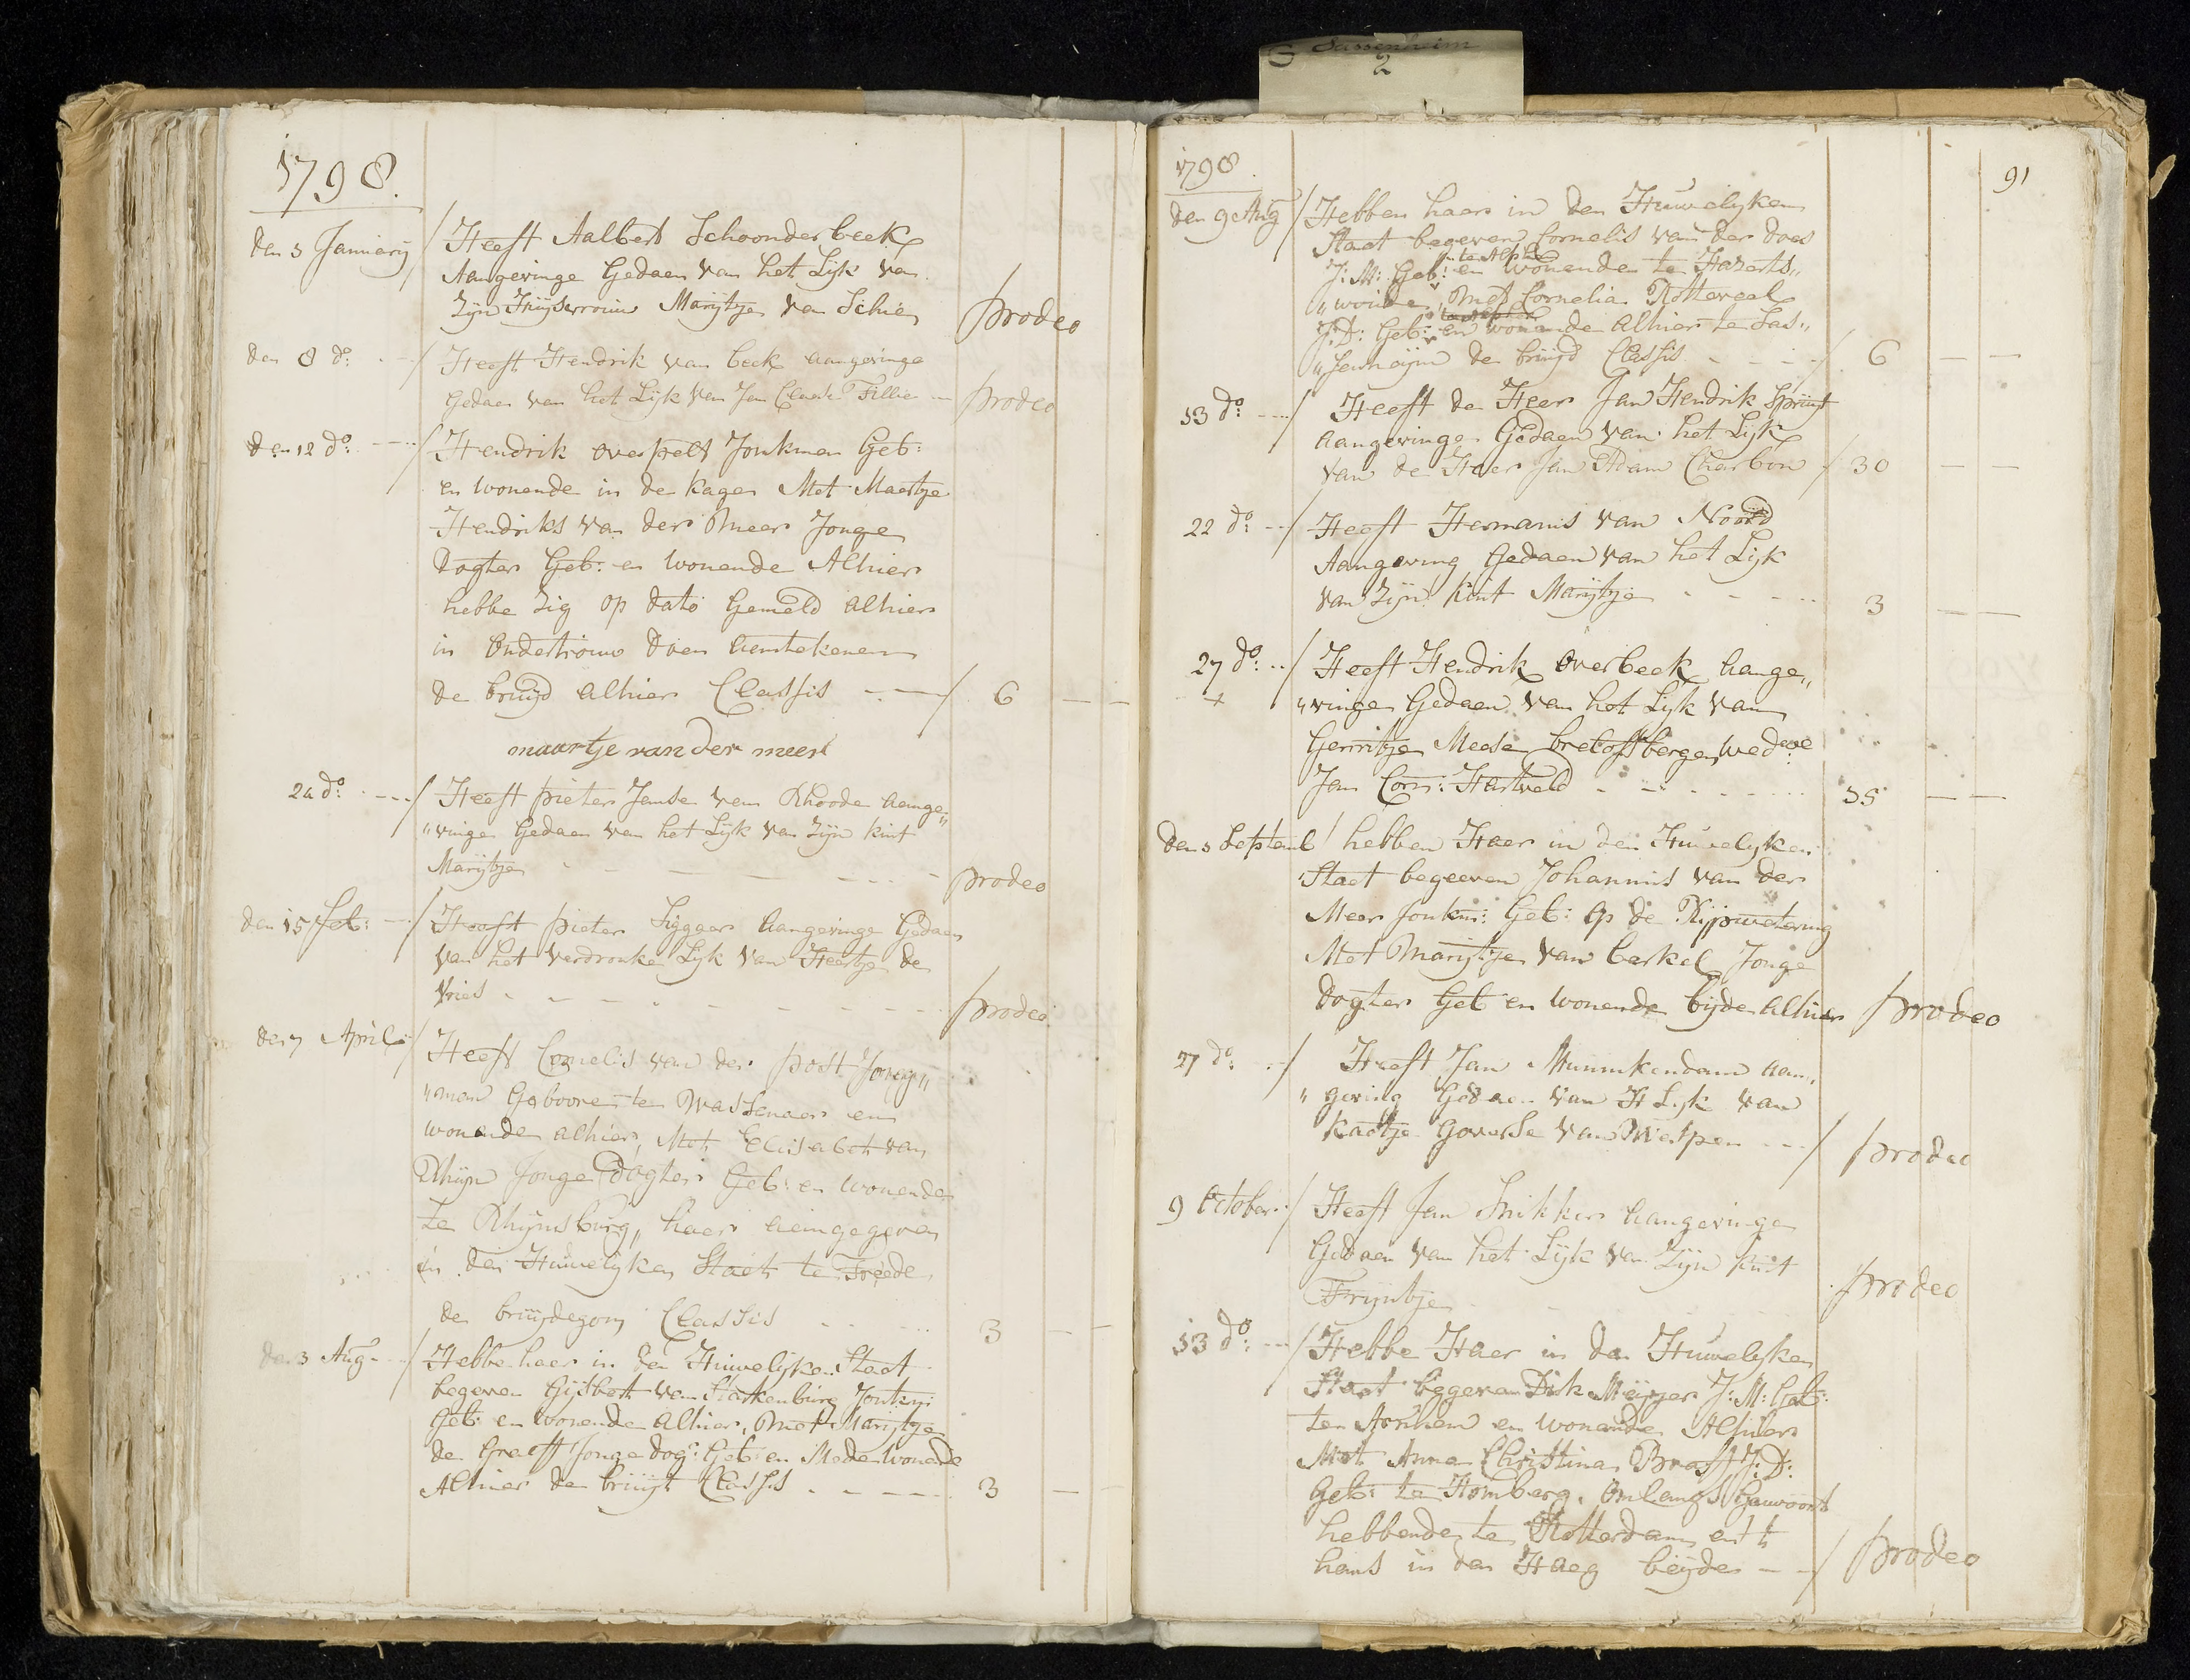 Sassenheim
2
1798.
den 3 Januarij / Heeft Aalbert Schoonderbeek
Aangevinge Gedaen van het Lijk van
Zijn Huijsvrouw Marijtje van Schie prodeo
den 8 do: / Heeft Hendrik van beek aangevinge
Gedaen van het Lijk van Jan Claese Fillie prodeo
den 12 do. / Hendrik overpelt Jonkman Geb:
en wonende in de Kage Met Maertje
Hendriks van der Meer Jonge
Dogter Geb: en wonende Alhier
hebbe Zig op dato Gemeld alhier
in Ondertrouw doen aentekenen
de bruijd alhier Classis / 6 — —
maartje van der meer
24 do: / Heeft pieter Janse van Rhoode aange„
„vinge Gedaen van het Lijk van Zijn kint
Marijtje prodeo
den 15 feb: / Heeft pieter Siggaar Aangevinge Gedaen
van het verdronke Lijk van Heertje de
Vries prodeo
den 7 April / Heeft Cornelis van der post Jong„
„man Gebooren te Wassenaer en
wonende alhier, Met Elisabet van
Rhijn Jonge Dogter Geb: en wonende
te Rhijnsburg, haer aengegeven
in den Huwelijken Staet te Treede
de bruijdegom Classis 3 — —
den 3 Aug. / Hebbe haer in den Huwelijken Staet
begeven Gijsbert van Starkenburg Jonkm:
Geb: en wonende Alhier, Met Marijtje
de Graeff Jonge dogr: Geb: en Mede wonende
Alhier de bruijt Classis 3 —
1798. 91
den 9 Aug / Hebben haer in den Huwelijken
Staet begeven Cornelis van der does
te Alphen
J: M: Geb: en wonende te Hazerts„
„woude, Met Cornelia Rotteveel
J: D: Geb: en wonende Alhier te Sas„
„senheijm de bruijd Classis / 6 — —
13 do: / Heeft de Heer Jan Hendrik Spruijt
aangevinge Gedaen van het Lijk
van de Heer Jan Adam Charbon / 30 — —
22 do: / Heeft Hermanis van Noord
Aangeving Gedaen van het Lijk
van Zijn Kint Marijtje 3 — —
27 do: / Heeft Hendrik Overbeek aange„
„vinge Gedaen van het Lijk van
Gerritje Meese wede:
Jan Corn: Hartveld 15 — —
den 3 Septemb / hebben Haer in den Huwelijken
Staet begeeven Johannis van der
Meer Jonkm: Geb: op de Rijpwetering
Met Marijtje van berkel Jonge
Dogter Geb en wonende bijde Alhier prodeo
27 do: / Heeft Jan Munnikendam aan„
„geving Gedaen van H Lijk van
Kaatje Goverse van Westpen / prodeo
9 October / Heeft Jan Snikker aangevinge
Gedaen van het Lijk van Zijn kint
Trijntje prodeo
13 do: / Hebbe Haer in den Huwelijken
Staet begeven Dirk Meijer J: M: Geb:
te Arnhem en wonende Alhier
Met Anna Christina J: D:
Geb: te Homberg. Onlangs Gewoont
hebbende te Rotterdam en t
hans in den Haeg beijde / prodeo